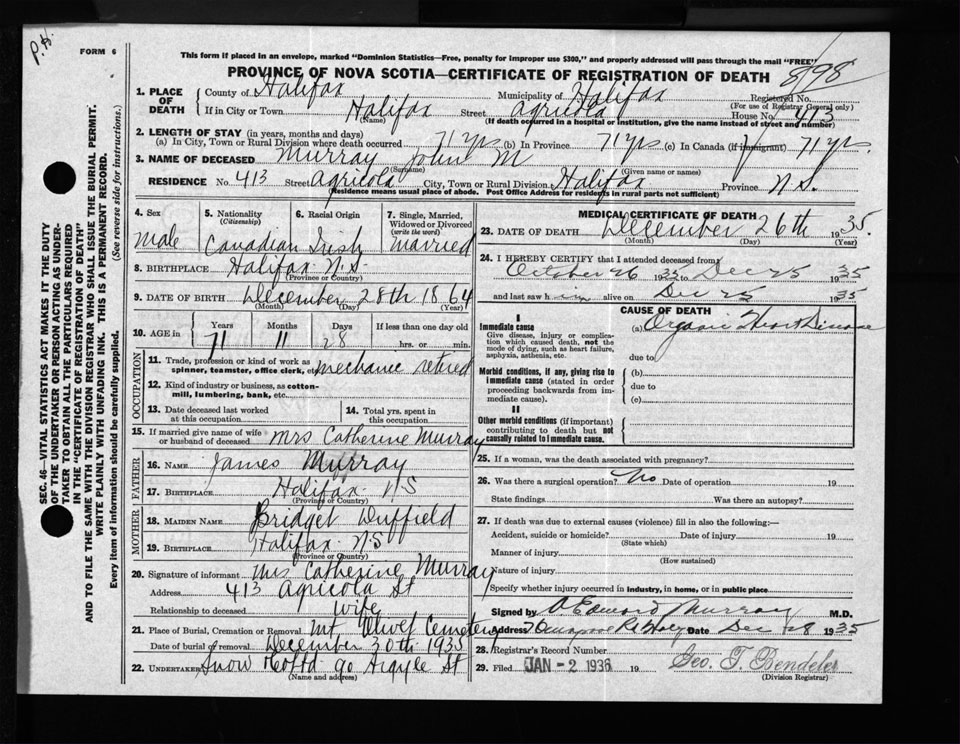 P.H.
FORM 6
This form if placed in an envelope, marked "Dominion Statistics—Free, penalty for improper use $300," and properly addressed will pass through the mail "FREE"
PROVINCE OF NOVA SCOTIA—CERTIFICATE OF REGISTRATION OF DEATH
898
1. PLACE OF DEATH
County of Halifax Municipality of Halifax Registered No.
(For use of Registrar General only)
If in City or Town Halifax Street Agricola House No. 413
(Name) (If death occurred in a hospital or institution, give the name instead of street and number)
2. LENGTH OF STAY (in years, months and days)
(a) In City, Town or Rural Division where death occurred 71 yrs (b) In Province 71 yrs (c) In Canada (if immigrant) 71 yrs.
3. NAME OF DECEASED Murray John M
(Surname) (Given name or names)
RESIDENCE No. 413 Street Agricola City, Town or Rural Division Halifax Province N.S.
(Residence means usual place of abode. Post Office Address for residents in rural parts not sufficient)
4. Sex
Male
5. Nationality
(Citizenship)
Canadian
6. Racial Origin
Irish
7. Single, Married, Widowed or Divorced
(write the word)
Married
8. BIRTHPLACE Halifax N.S.
(Province or Country)
9. DATE OF BIRTH December 28th 1864
(Month) (Day) (Year)
10. AGE in
Years Months Days If less than one day old
71 11 28 hrs. or min.
OCCUPATION
11. Trade, profession or kind of work as spinner, teamster, office clerk, etc. mechanic retired
12. Kind of industry or business, as cotton-mill, lumbering, bank, etc.
13. Date deceased last worked at this occupation
14. Total yrs. spent in this occupation
15. If married give name of wife or husband of deceased Mrs Catherine Murray
FATHER
16. NAME James Murray
17. BIRTHPLACE Halifax N.S
(Province or Country)
MOTHER
18. MAIDEN NAME Bridget Duffield
19. BIRTHPLACE Halifax N.S
(Province or Country)
20. Signature of informant Mrs Catherine Murray
Address 413 Agricola St
Relationship to deceased wife
21. Place of Burial, Cremation or Removal Mt Olivet Cemetery
Date of burial or removal December 30th 1935
22. UNDERTAKER Snow 90 Argyle St
(Name and address)
MEDICAL CERTIFICATE OF DEATH
23. DATE OF DEATH December 26th 1935.
(Month) (Day) (Year)
24. I HEREBY CERTIFY that I attended deceased from
October 26 1935 to Dec 25 1935
and last saw h im alive on Dec 25 1935
CAUSE OF DEATH
I
Immediate cause
Give disease, injury or complication which caused death, not the mode of dying, such as heart failure, asphyxia, asthenia, etc.
(a) Organic Heart Disease
due to
Morbid conditions, if any, giving rise to immediate cause (stated in order proceeding backwards from immediate cause).
(b)
due to
(c)
II
Other morbid conditions (if important) contributing to death but not causally related to immediate cause.
25. If a woman, was the death associated with pregnancy?
26. Was there a surgical operation? No Date of operation 19
State findings Was there an autopsy?
27. If death was due to external causes (violence) fill in also the following:—
Accident, suicide or homicide? Date of injury 19
(State which)
Manner of injury
(How sustained)
Nature of injury
Specify whether injury occurred in industry, in home, or in public place
Signed by Edward Murray M.D.
Address Date Dec 28 1935
28. Registrar's Record Number
29. Filed JAN - 2 1936 19 Geo. T. Rendeler
(Division Registrar)
SEC. 46—VITAL STATISTICS ACT MAKES IT THE DUTY
OF THE UNDERTAKER OR PERSON ACTING AS UNDER-
TAKER TO OBTAIN ALL THE PARTICULARS REQUIRED
IN THE "CERTIFICATE OF REGISTRATION OF DEATH"
AND TO FILE THE SAME WITH THE DIVISION REGISTRAR WHO SHALL ISSUE THE BURIAL PERMIT.
WRITE PLAINLY WITH UNFADING INK. THIS IS A PERMANENT RECORD.
Every item of information should be carefully supplied. (See reverse side for instructions.)